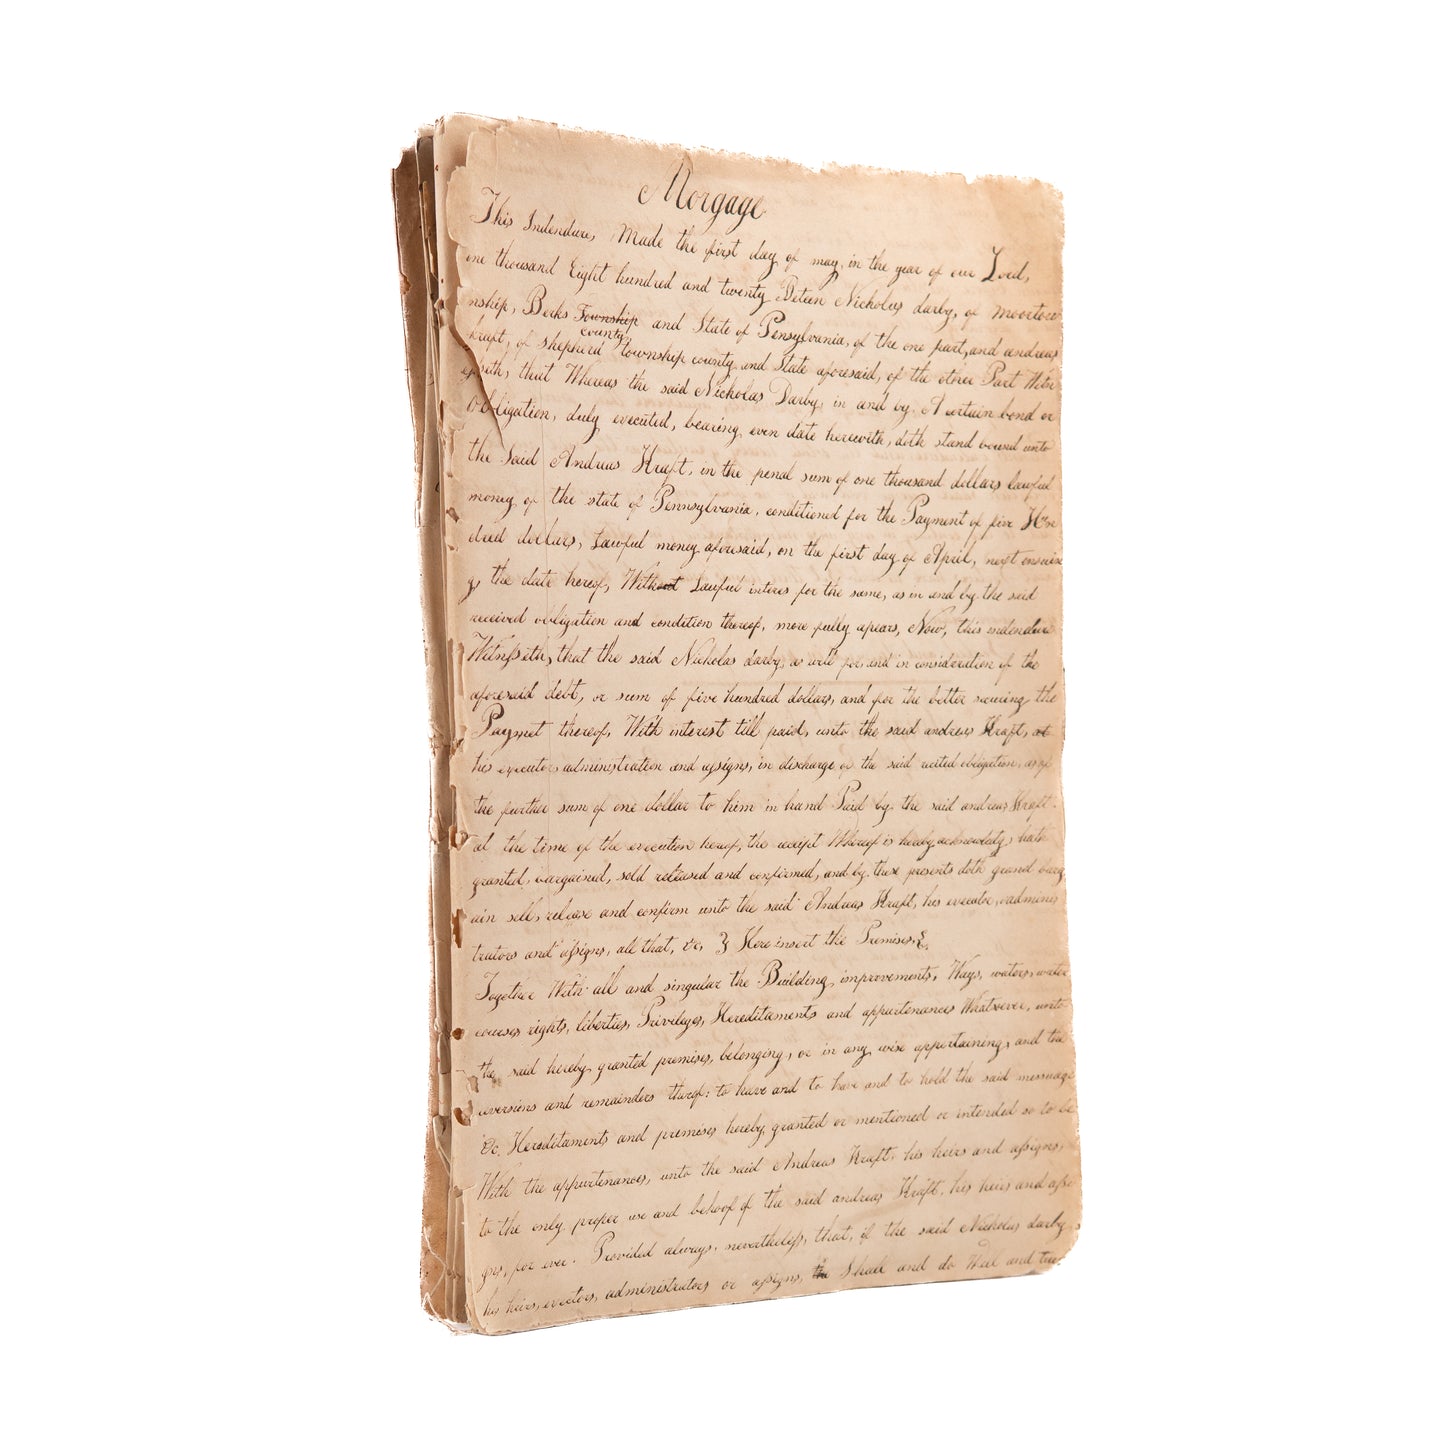 Morgage
This Indendure, Made the first day of may, in the year of our Lord,
one thousand Eight hundred and twenty Between Nicholas darby, of moortown
nship, Berks Township and State of Pensylvania, of the one part, and andreas
county
Kraft, of shepherd township county and State aforesaid, of the other Part Witn
esseth, that Whereas the said Nicholas Darby, in and by A certain bond or
Obligation, duly executed, bearing even date herewith, doth stand bound unto
the Said Andreas Kraft, in the penal sum of one thousand dollars lawful
money of the state of Pennsylvania, conditioned for the Payment of five Hun
dred dollars, Lawful money aforesaid, on the first day of April, next ensuin
g, the date hereof, Without Lawful interes for the same, as in and by the said
received obligation and condition thereof, more fully apears, Now, this indendure
Witnesseth, that the said Nicholas darby, as well for and in consideration of the
aforesaid debt, or sum of five hundred dollars, and for the better securing the
Paymet thereof, With interest till paid, unto the said andreas Kraft,
his executor, administration and assigns, in discharge of the said recited obligation, as of
the further sum of one dollar to him in hand Paid by the said andreas Kraft.
at the time of the execution hereof, the receipt Whereof is hereby acknowledg, hath
granted, bargained, sold released and confirmed, and by these presents doth grand barg
ain sell, release and confirm unto the said Andreas Kraft, his executor, adminis
trators and assigns, all that, &c. } Here insert the Premises, &.
Together With all and singular the Building, improvements, Ways, waters, water
courses rights, liberties, Privileges, Hereditaments and appurtenances Whatsoever, unto
the said hereby granted premises, belonging, or in any wise appertaining, and the
reversions and remainders therof: to have and to have and to hold the said messuage
&c. Hereditaments and premises hereby granted or mentioned or intended so to be
With the appurtenances, unto the said Andreas Kraft, his heirs and assigns,
to the only proper use and behoof of the said andreas Kraft, his heirs and assi
gns, for ever. Provided always, nevertheless, that, if the said Nicholas darby
his heirs, exectors, administrators or assigns, Shall and do Well and tru